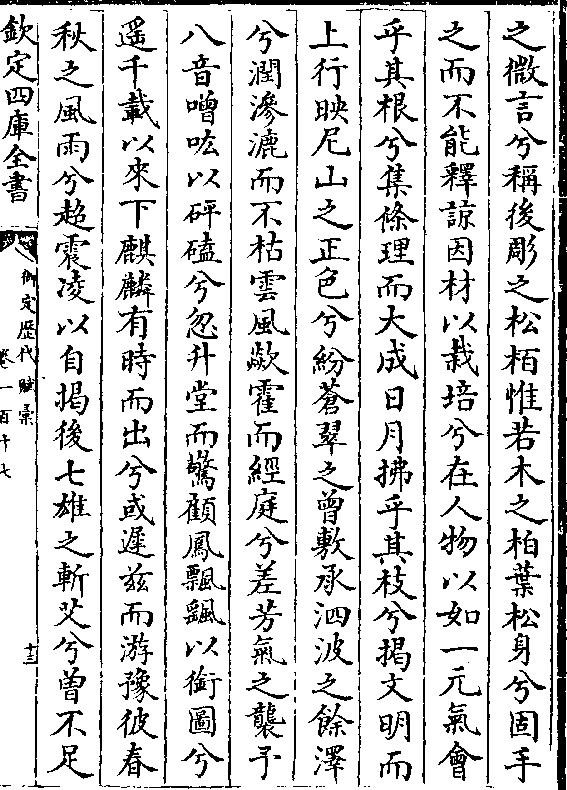 之微言兮稱後彫之松栢惟若木之柏葉松身兮固手
之而不能釋諒因材以栽培兮在人物以如一元氣會
乎其根兮集條理而大成日月拂乎其枝兮揭文明而
上行映尼山之正色兮紛蒼翠之曾敷承泗波之餘澤
兮潤滲漉而不枯雲風歘霍而經庭兮差芳氣之襲予
八音噌吰以砰磕兮忽升堂而驚顧鳳飄飄以銜圖兮
遥千載以來下麒麟有時而出兮或遲兹而游豫彼春
秋之風雨兮超震凌以自揭後七雄之斬艾兮曽不足
欽定四庫全書
御定歴代賦彙
卷一百十七
十三